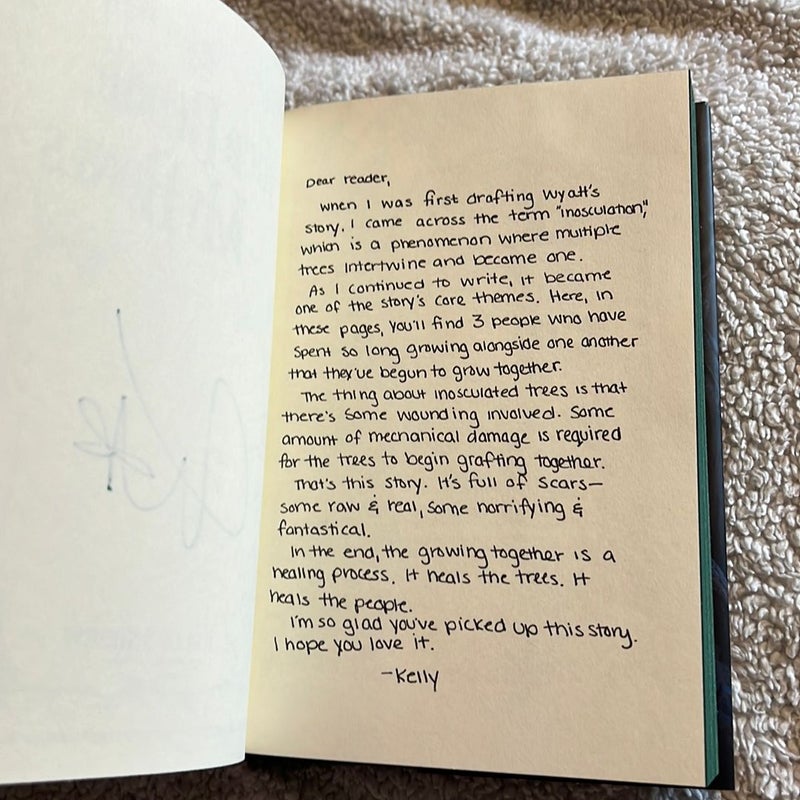 Dear reader,
When I was first drafting Wyatt's
story, I came across the term "inosculation",
which is a phenomenon where multiple
trees intertwine and become one.
As I continued to write, it became
one of the story's core themes. Here, in
these pages, you'll find 3 people who have
spent so long growing alongside one another
that they've begun to grow together.
The thing about inosculated trees is that
there's some wounding involved. Some
amount of mechanical damage is required
for the trees to begin grafting together.
That's this story. It's full of scars—
some raw & real, some horrifying &
fantastical.
In the end, the growing together is a
healing process. It heals the trees. It
heals the people.
I'm so glad you've picked up this story.
I hope you love it.
-Kelly